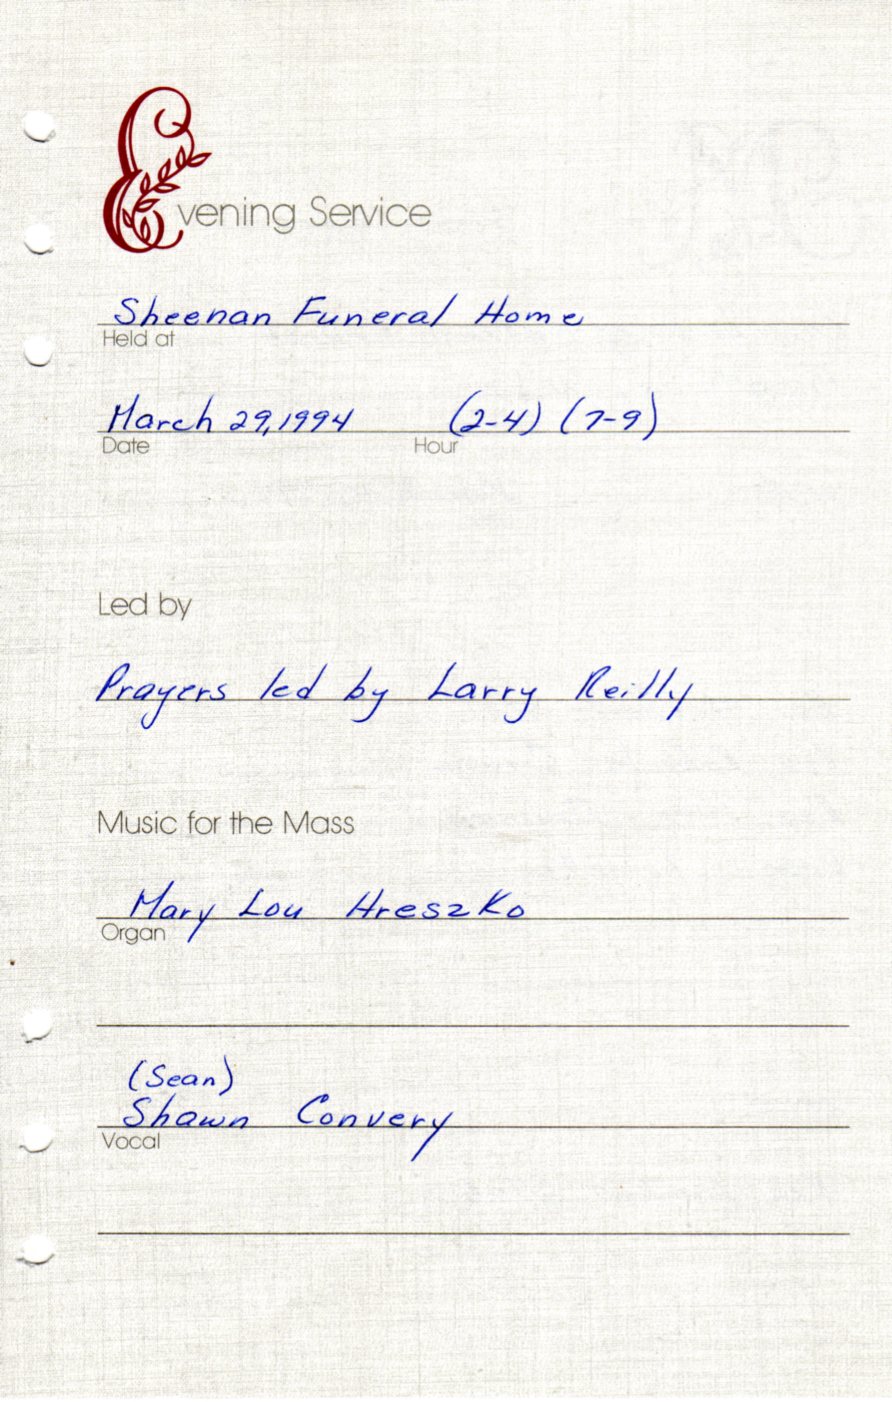 Evening Service
Sheenan Funeral Home
Held at
March 29, 1994 (2-4) (7-9)
Date Hour
Led by
Prayers led by Larry Reilly
Music for the Mass
Mary Lou Hreszko
Organ
(Sean)
Shawn Convery
Vocal